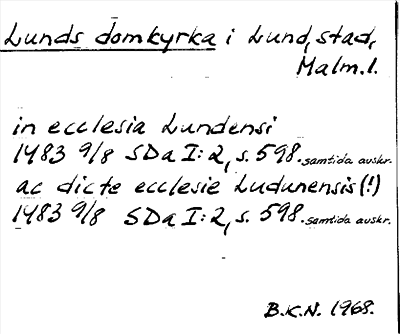 Lunds domkyrka i Lund, stad,
Malm. l.
in ecclesia Lundensi
1483 9/8 SDa I:2, s. 598. samtida avskr.
ac dicte ecclesie Ludunensis (!)
1483 9/8 SDa I:2, s. 598. samtida avskr.
B.K.N. 1968.